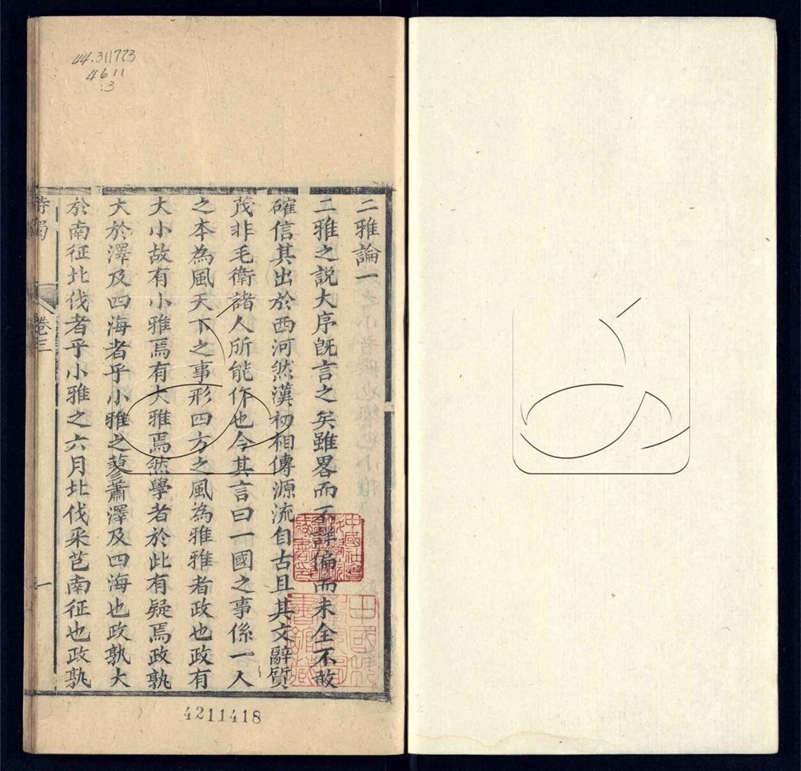 44.311773
4611
:3
二雅論一
二雅之說大序旣言之矣雖畧而不詳偏而未全不敢
確信其出於西河然漢初相傳源流自古且其文辭質
茂非毛衛諸人所能作也今其言曰一國之事係一人
之本為風天下之事形四方之風為雅雅者政也政有
大小故有小雅焉有大雅焉然學者於此有疑焉政孰
大於澤及四海者乎小雅之蓼蕭澤及四海也政孰大
於南征北伐者乎小雅之六月北伐采芑南征也政孰
卷三
一
4211418